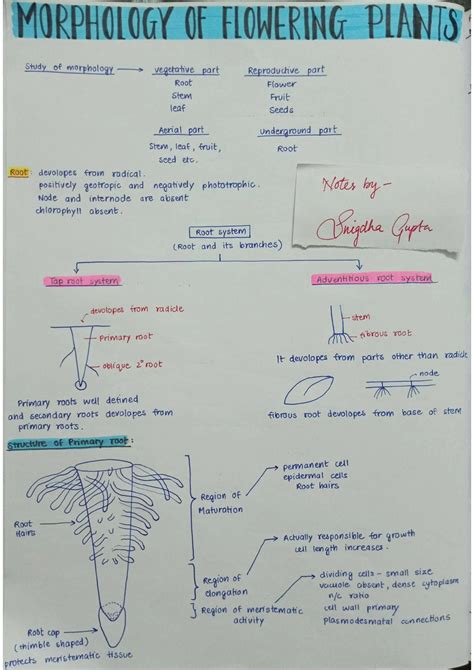 MORPHOLOGY OF FLOWERING PLANTS
Study of morphology
vegetative part
Root
Stem
leaf
Reproductive part
Flower
Fruit
Seeds
Aerial part
Stem, leaf, fruit,
seed etc.
underground part
Root
Root: devolopes from radical.
positively geotropic and negatively phototrophic.
Node and internode are absent
chlorophyll absent.
Notes by -
Snigdha Gupta
Root system
(Root and its branches)
Tap root system
Adventitious root system
devolopes from radicle
primary root
oblique 2° root
stem
fibrous root
It devolopes from parts other than radicle
node
Primary roots well defined
and secondary roots devolopes from
primary roots.
fibrous root devolopes from base of stem
Structure of Primary root:
Root
Hairs
Region of
Maturation
permanent cell
epidermal cells
Root hairs
Region of
elongation
Actually responsible for growth
cell length increases.
Region of meristematic
activity
dividing cells - small size
vacuole absent, dense cytoplasm
n/c ratio
cell wall primary
plasmodesmatal connections.
Root cap
(thimble shaped)
protects meristematic tissue